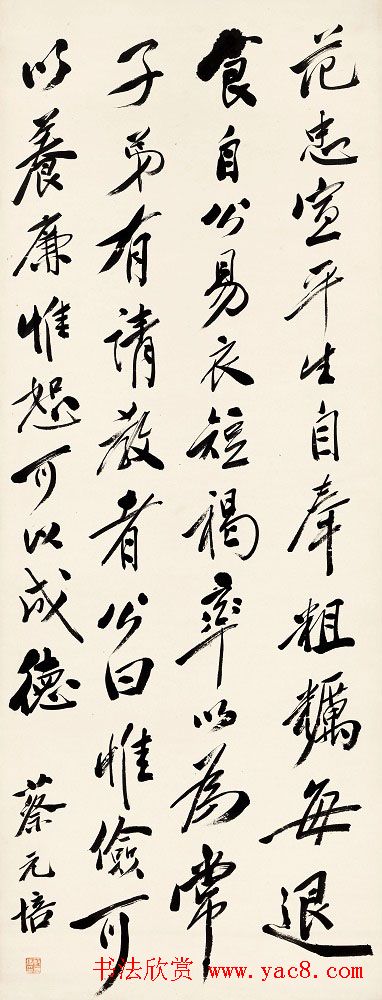 范忠宣平生自奉粗糲每退
食自公易衣短褐率以為常
子弟有請教者公曰惟儉可
以養廉惟恕可以成德
蔡元培
书法欣赏 www.yac8.com